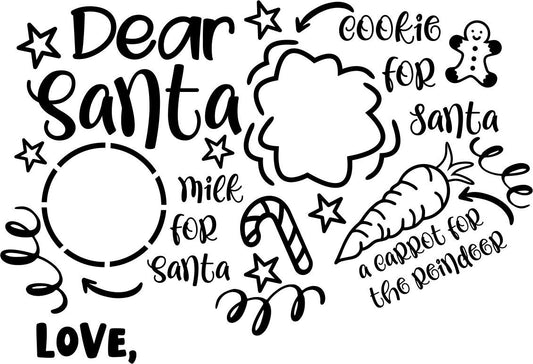 Dear
Santa
cookie
for
Santa
milk
for
Santa
a carrot for
the reindeer
LOVE,